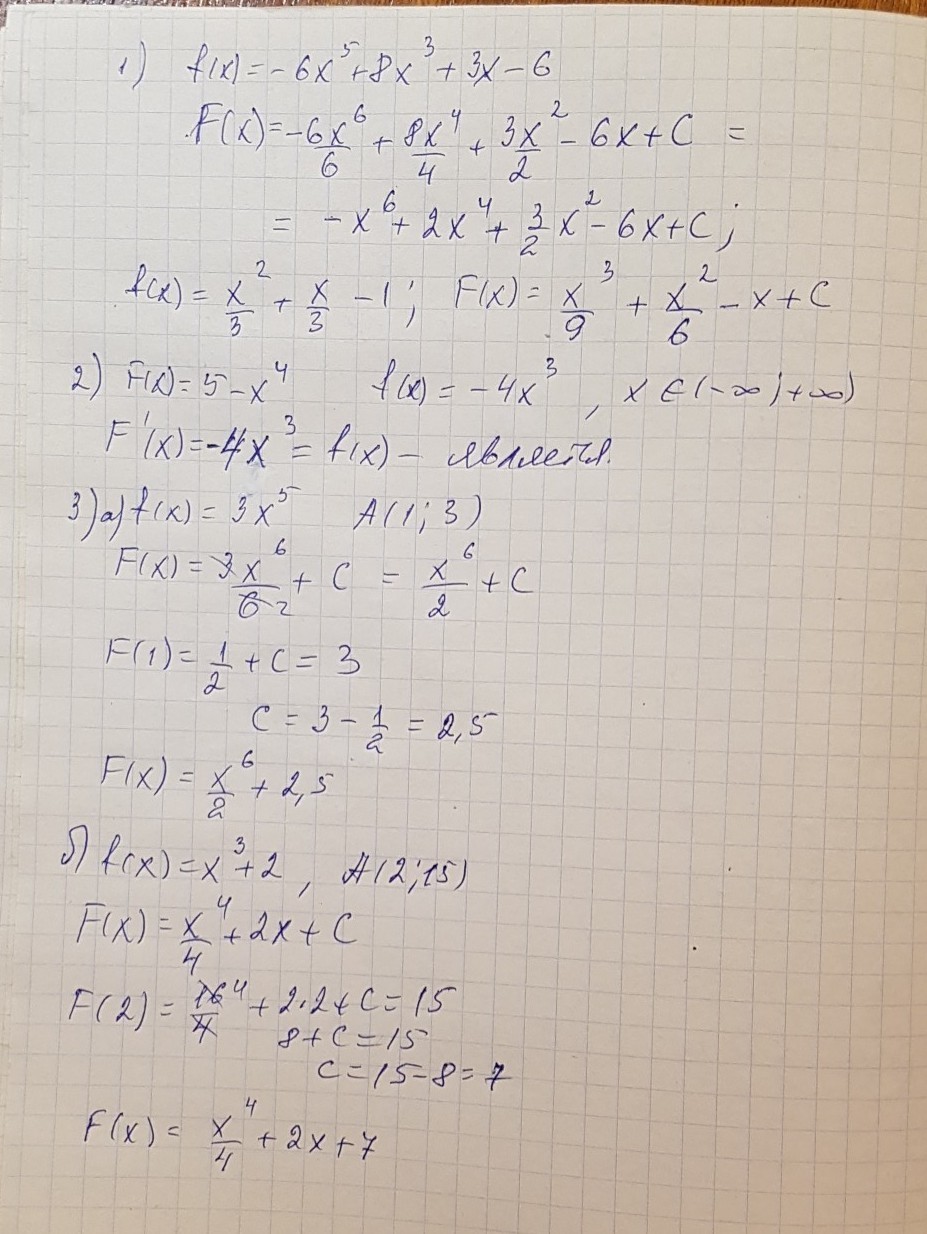 1) f(x) = -6x⁵+8x³+3x-6
F(x) = -6x⁶/6 + 8x⁴/4 + 3x²/2 - 6x + C =
= -x⁶ + 2x⁴ + 3/2 x² - 6x + C;
f(x) = x²/3 + x/3 - 1; F(x) = x³/9 + x²/6 - x + C
2) F(x) = 5-x⁴ f(x) = -4x³, x ∈ (-∞;+∞)
F'(x) = -4x³ = f(x) - является.
3) а) f(x) = 3x⁵ A(1;3)
F(x) = 3x⁶/6 2 + C = x⁶/2 + C
F(1) = 1/2 + C = 3
C = 3 - 1/2 = 2,5
F(x) = x⁶/2 + 2,5
б) f(x) = x³+2, A(2;15)
F(x) = x⁴/4 + 2x + C
F(2) = 16 4/4 + 2·2 + C = 15
8 + C = 15
C = 15-8 = 7
F(x) = x⁴/4 + 2x + 7